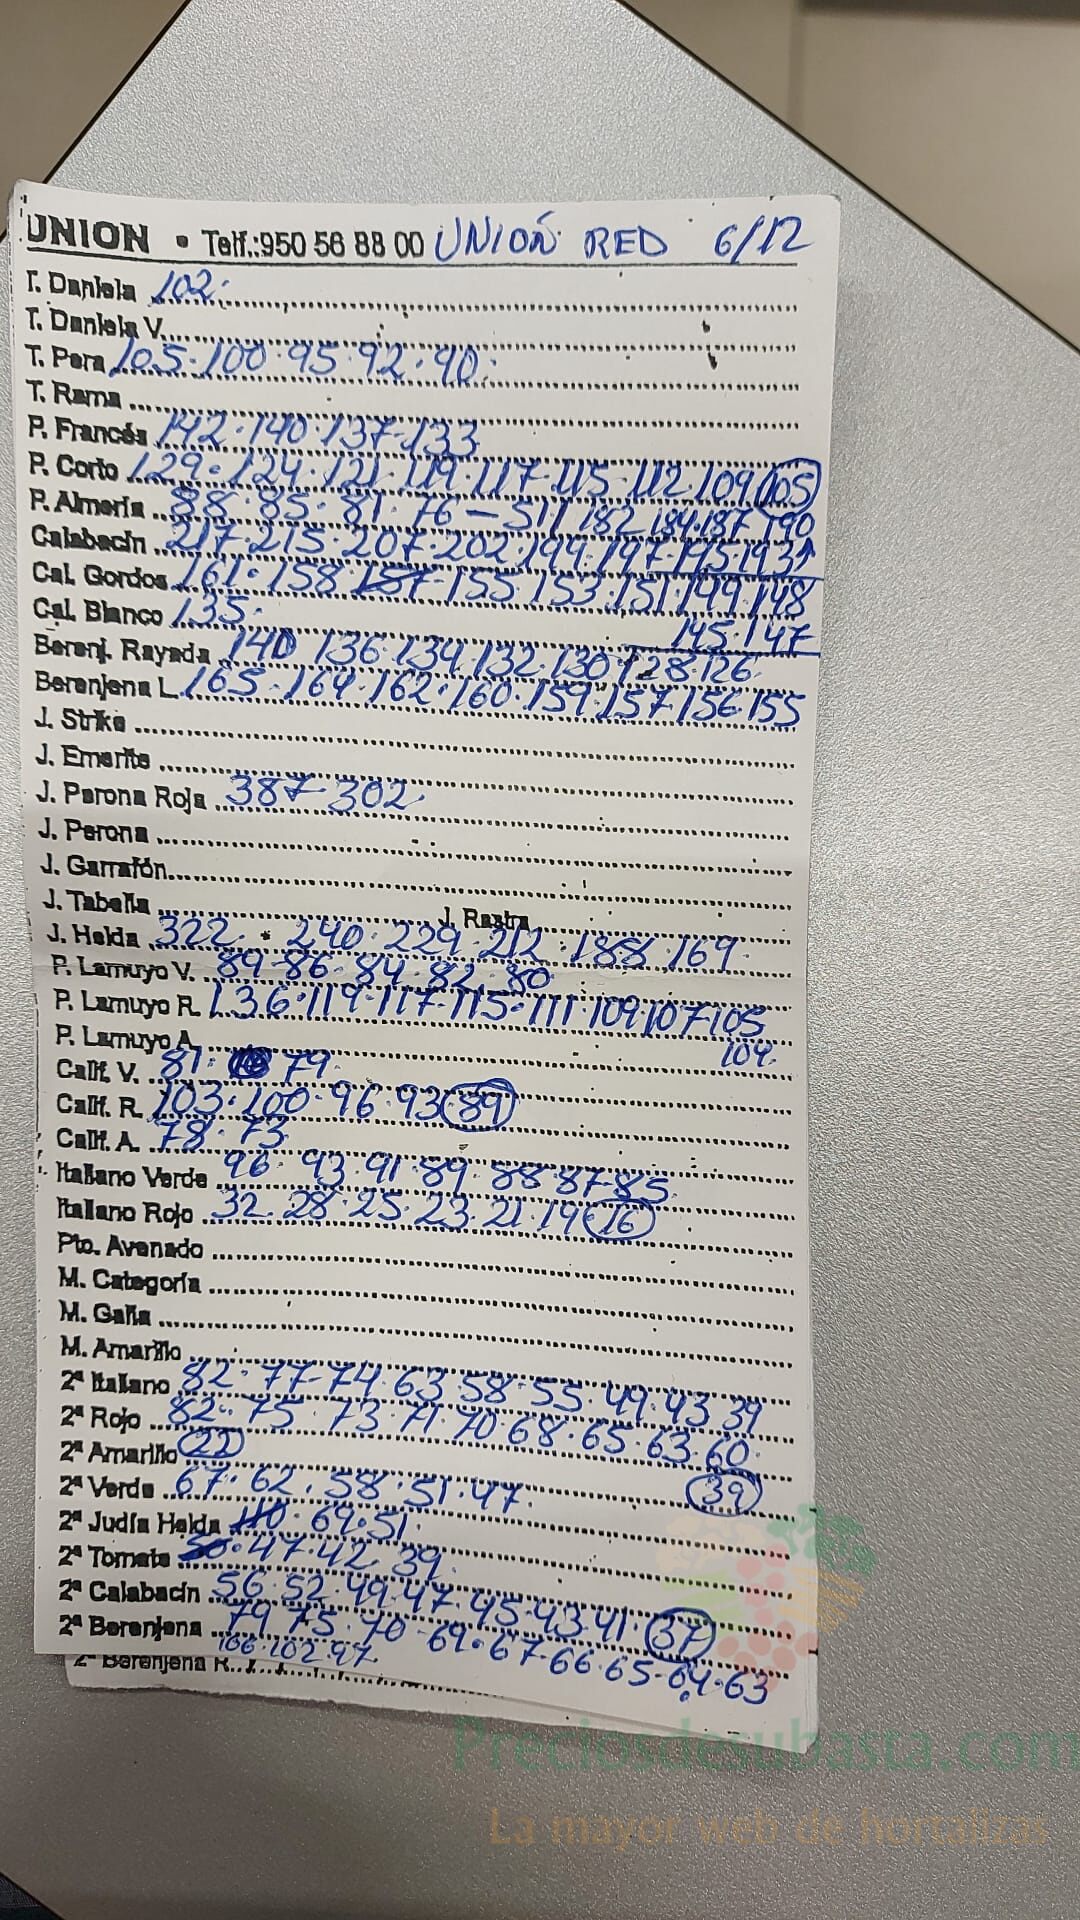 UNION • Telf.:950 56 88 00 UNIÓN RED 6/12
T. Daniela 102.
T. Daniela V.
T. Pera 105.100.95.92.90.
T. Rama
P. Francés 142.140.137-133
P. Corto 129.124.121.119.117.115.112.109 105
P. Almería 88.85.81.76-51 182 184.187 190
Calabacín 217.215.207.202.199.197-195.193↑
Cal. Gordos 161.158.157-155.153.151.149.148
145.147
Cal. Blanco 135.
Berenj. Rayada 140 136.134.132.130.128.126.
Berenjena L. 165.164.162.160.159.157.156.155
J. Strike
J. Emerite
J. Perona Roja 387-302.
J. Perona
J. Garrafón
J. Tabella J. Rastra
J. Helda 322. 240.229.212.188.169.
P. Lamuyo V. 89-86.84.82.80
P. Lamuyo R. 136.119.117.115.111.109.107.105
104.
P. Lamuyo A.
Calif. V. 81. 79.
Calif. R. 103.100.96.93 89
Calif. A. 78.73
Italiano Verde 96.93.91.89.88.87-85.
Italiano Rojo 32.28.25.23.21.19 16
Pto. Avenado
M. Categoría
M. Galia
M. Amarillo
2ª Italiano 82.77-74.63.58.55.49.43 39
2ª Rojo 82.75.73.71.70.68.65.63.60.
39
2ª Amarillo 22
2ª Verde 67.62.58.51.47.
2ª Judía Helda 110.69.51.
2ª Tomate 50.47.42.39.
2ª Calabacín 56.52.49.47.45.43.41. 37
2ª Berenjena 79 75.70-69.67-66.65-64.63
106.102.97
2ª Berenjena R.
Preciosdesubasta.com
La mayor web de hortalizas